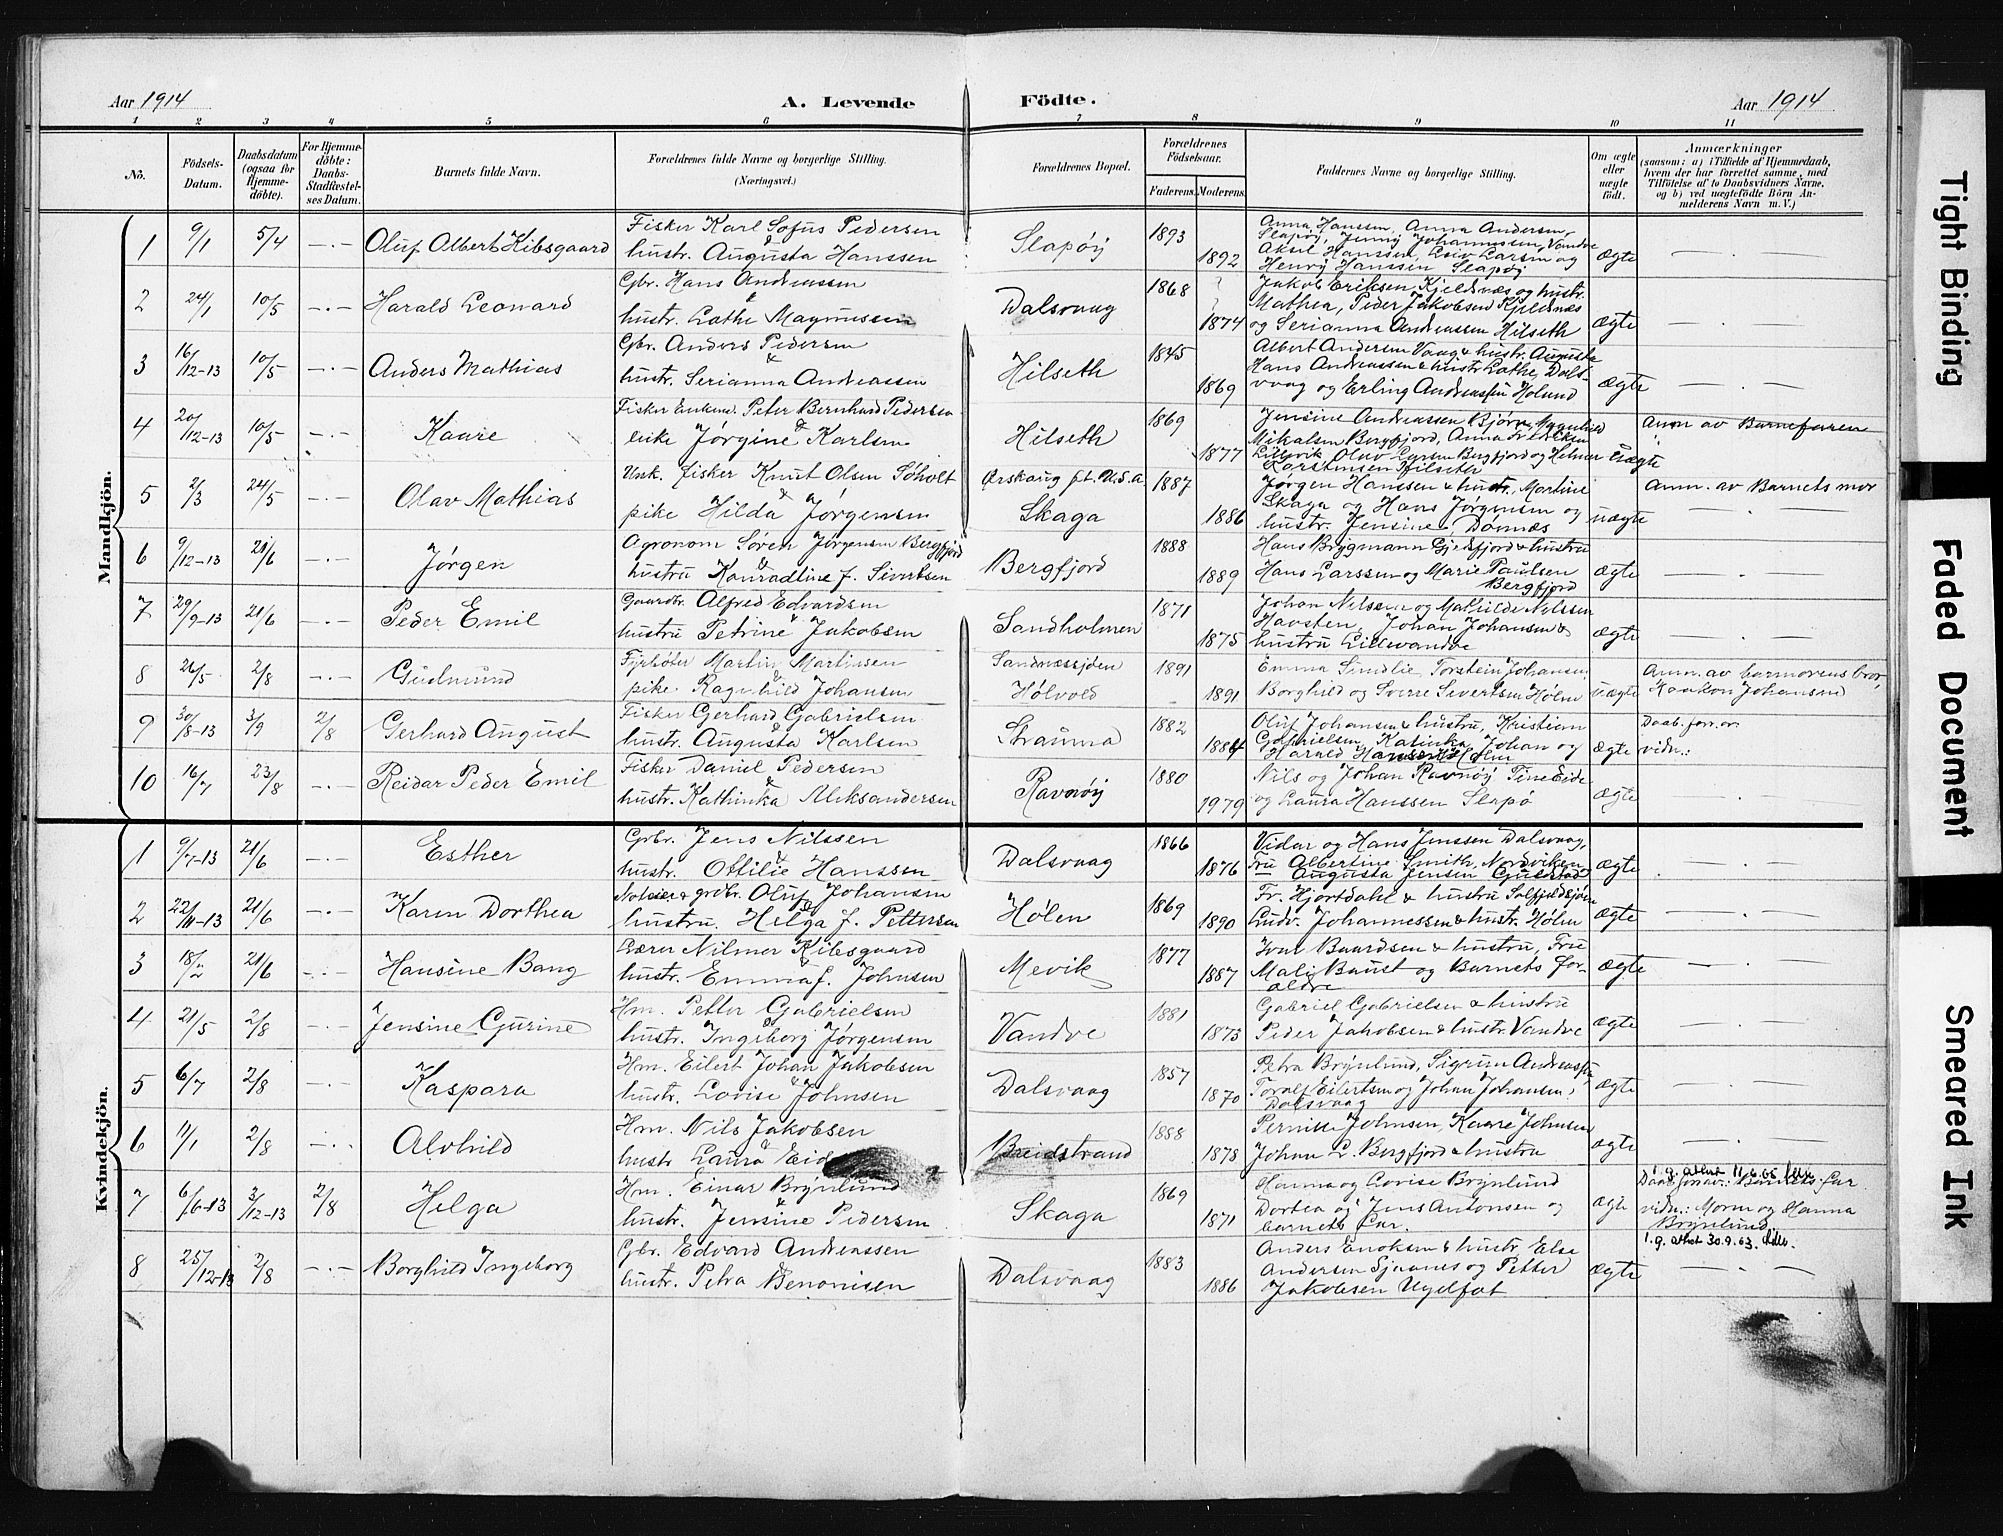 Aar 1914 A. Levende Födte. Aar 1914
1 2 3 4 5 6 7 8 9 10 11
No. Födsels-Datum. Daabsdatum (ogsaa for Hjemmedöbte). For Hjemmedöbte: Daabs-Stadfæstelses Datum. Barnets fulde Navn. Forældrenes fulde Navne og borgerlige Stilling. (Næringsvei.) Forældrenes Bopæl. Forældrenes Födselsaar. Faderens. Moderens. Faddernes Navne og borgerlige Stilling. Om ægte eller uægte födt. Anmærkninger (saasom: a) i Tilfælde af Hjemmedaab, hvem der har forrettet samme, med Tilföielse af to Daabsvidners Navne, og b) ved uægtefödte Börn Anmelderens Navn m. V.)
Mandkjön.
1 9/1 5/4 -·- Oluf Albert Kibsgaard Fisker Karl Sofus Pedersen & hustr. Augusta Hanssen Slapøy 1893 1892 Anna Hanssen, Anna Andersen, Slapøy, Jenny Johannessen, Vandve Aksel Hanssen, Leiv Larsen og Henry Hanssen Slapøy ægte — · —
2 24/1 10/5 -·- Harald Leonard Gbr. Hans Andreassen & hustr. Lothe Magnussen Dalsvaag 1868 1874 Jakob Eriksen Kjeldnæs og hustr. Mathea, Peder Jakobsen Kjeldnæs og Serianna Andreassen Hilseth ægte — · —
3 16/12-13 10/5 -·- Anders Mathias Gbr. Anders Pedersen & hustr. Serianna Andreassen Hilseth 1845 1869 Albert Andersen Vaag & hustr. Augusta Hans Andreassen & hustr Lothe, Dalsvaag og Erling Andreassen Holund ægte — · —
4 20/12-13 10/5 -·- Kaare Fisker Enkem. Peter Bernhard Pedersen & enke Jørgine Karlsen Hilseth 1869 1877 Jensine Andreassen Bjørn, Magnhild Mikalsen Bergfjord, Anna Fredriksen Lillevik Olav Larsen Bergfjord og Helmer Torstensen Hilseth uægte Anm av Barnefaren
5 2/3 24/5 -·- Olav Mathias Unk. fisker Knut Olsen Søholt & pike Hilda Jørgensen Ørskaug pt. U.S.a Skaga 1887 1886 Jørgen Hanssen & hustr. Martine Skaga og Hans Jørgensen og hustr. Jensine Dønnæs uægte Anm. av Barnets mor — · —
6 9/12-13 21/6 -·- Jørgen Agronom Søren Jørgensen Bergfjord & hustru Konradline f. Sivertsen Bergfjord 1888 1889 Hans Brygmann Gjesfjord & hustru Hans Larssen og Marie Paulsen Bergfjord ægte — · —
7 29/9-13 21/6 -·- Peder Emil Gaardbr. Alfred Edvardsen & hustru Petrine Jakobsen Sandholmen 1871 1875 Johan Nilsen og Mathilde Nilssen Havsten, Johan Johansen & hustru Lillevandve ægte — · —
8 26/5 2/8 -·- Gudmund Fyrbøter Martin Martinsen & pike Ragnhild Johansen Sandnessjøen Hølvold 1891 1891 Emma Smslie, Torstein Johansen, Borghild og Sverre Sivertsen Hølen uægte Anm. av barmorens bror, Haakon Johansen
9 30/8-13 3/9 2/8 Gerhard August Fisker Gerhard Gabrielsen & hustr. Augusta Karlsen Strauma 1882 1884 Oluf Johansen & hustru, Kristian Gabrielsen, Katinka Johan og Harald Hanssen Holm ægte Daab. forr. av vidn.:
10 16/7 23/8 -·- Reidar Peder Emil Fisker Daniel Pedersen & hustr. Kathinka Aleksandersen Ravnøy 1880 1979 Nils og Johan Ravnøy Tine Eide og Laura Hanssen Slapø ægte — · —
Kvindekjön.
1 9/7-13 21/6 -·- Esther Gbr. Jens Nilssen & hustr. Ottilie Hanssen Dalsvaag 1866 1876 Vidar og Hans Jenssen Dalsvaag, Fru Albertine Smith, Nordviken Augusta Jensen Gulstad ægte — · —
2 22/11-13 21/6 -·- Karen Dorthea Notbas. & grdbr. Oluf Johansen & hustru. Helga f. Pettersen Hølen 1869 1890 Fr. Hjortdahl & hustru Solfjeldsjøen Ludv. Johannessen & hustr. Hølen ægte — · —
3 18/2 21/6 -·- Hansine Bang Lærer Nilmer Kibsgaard & hustr. Emma f. Johnsen Mevik 1877 1887 Ivar Baardsen & hustru, Fru Mali Baust og Barnets foraldre ægte — · —
4 21/5 2/8 -·- Jensine Gurine Hm. Petter Gabrielsen & hustr. Ingeborg Jørgensen Vandve 1881 1873 Gabriel Gabrielsen & hustru Peder Jakobsen & hustr. Vandve ægte — · —
5 6/7 2/8 -·- Kaspara Hm. Eilert Johan Jakobsen & hustr. Lovise Johnsen Dalsvaag 1857 1870 Petra Brynlund, Sigrun Andreassen, Toralf Eilertsen og Johan Johansen, Dalsvaag ægte — · —
6 11/1 2/8 -·- Alvhild Hm. Nils Jakobsen & hustr Laura Eide Breidstrand 1888 1878 Pernille Johnsen, Kaare Johnsen Johan L. Bergfjord & hustru ægte — · —
7 6/6-13 3/12-13 2/8 Helga Hm. Einar Brynlund & hustr. Jensine Pedersen Skaga 1869 1871 Hanna og Lovise Brynlund Dortea og Jens Antonsen og barnets Far. ægte 1.g. attest 11.6.65 Daab forr av.: Barnets far vidn.: Moren og Hanna Brynlund. 1.g. attest 30.9.63.
8 25/12-13 2/8 -·- Borghild Ingeborg Gbr. Edvard Andreassen & hustr. Petra Benonisen Dalsvaag 1883 1886 Anders Enoksen & hustr Else Andersen Sjaanes og Petter Jakobsen Ugelfat ægte — · —
Tight Binding
Faded Document
Smeared Ink